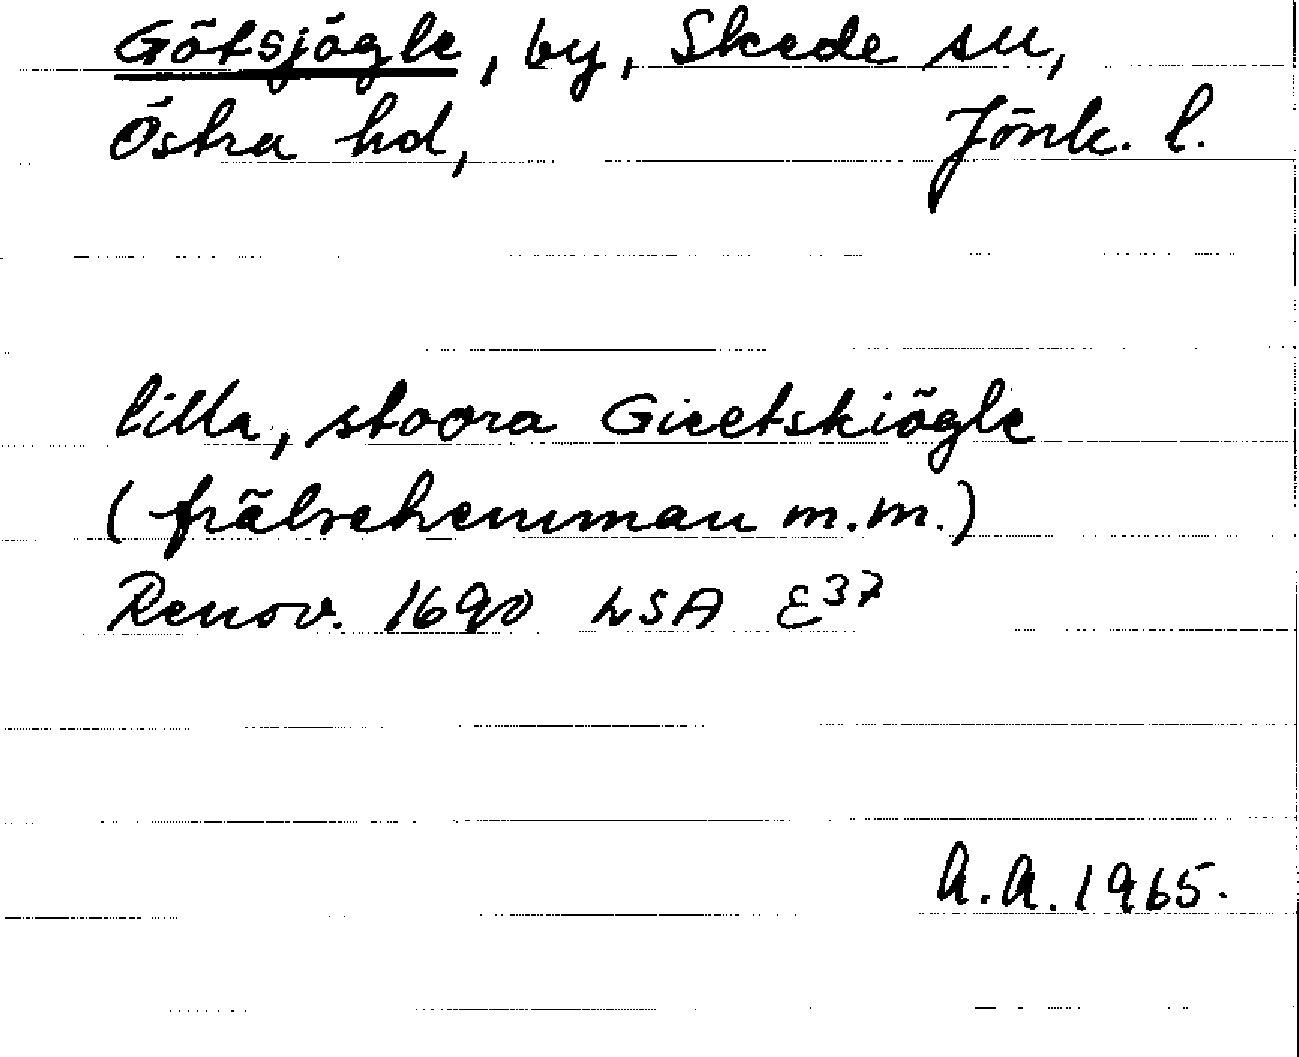 Götsjögle, by, Skede sn,
Östra hd, Jönk. l.
lilla, stoora Gieetskiögle
(frälsehemman m.m.)
Renov. 1690 LSA E37
A.A. 1965.